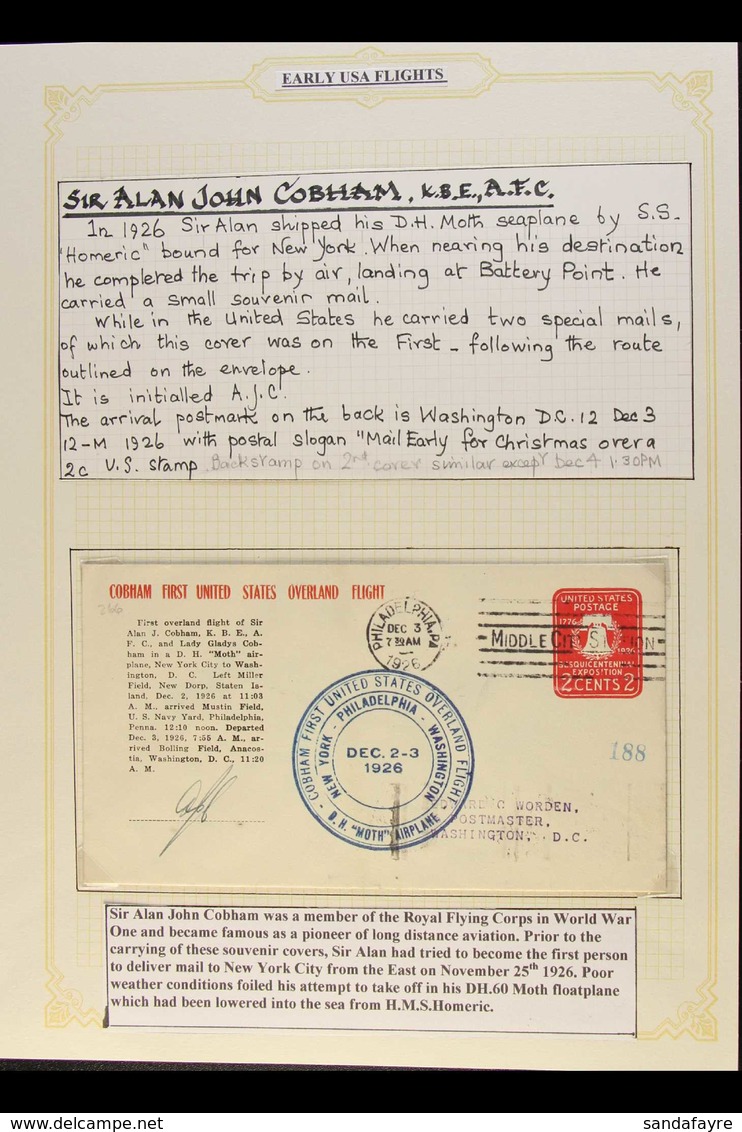 EARLY USA FLIGHTS
SIR ALAN JOHN COBHAM, K.B.E., A.F.C.
In 1926 Sir Alan shipped his D.H. Moth seaplane by S.S.
"Homeric" bound for New York. When nearing his destination
he completed the trip by air, landing at Battery Point. He
carried a small souvenir mail.
While in the United States he carried two special mails,
of which this cover was on the First - following the route
outlined on the envelope.
It is initialled A.J.C.
The arrival postmark on the back is Washington D.C. 12 Dec 3
12-M 1926 with postal slogan "Mail Early for Christmas over a
2c U.S. stamp. Backstamp on 2nd cover similar except Dec 4 1.30PM
COBHAM FIRST UNITED STATES OVERLAND FLIGHT
266
First overland flight of Sir
Alan J. Cobham, K. B. E., A.
F. C., and Lady Gladys Cob-
ham in a D. H. "Moth" air-
plane, New York City to Wash-
ington, D. C. Left Miller
Field, New Dorp, Staten Is-
land, Dec. 2, 1926 at 11:03
A. M., arrived Mustin Field,
U. S. Navy Yard, Philadelphia,
Penna. 12:10 noon. Departed
Dec. 3, 1926, 7:55 A. M., ar-
rived Bolling Field, Anacos-
tia, Washington, D. C., 11:20
A. M.
PHILADELPHIA, PA
DEC 3
7 30 AM
1926
MIDDLE CITY STATION
UNITED STATES
POSTAGE
1776
1926
SESQUICENTENNIAL
EXPOSITION
2 CENTS 2
COBHAM FIRST UNITED STATES OVERLAND FLIGHT
NEW YORK - PHILADELPHIA - WASHINGTON
DEC. 2-3
1926
D.H. "MOTH" AIRPLANE
188
EDWARD C WORDEN,
POSTMASTER,
WASHINGTON, D.C.
Sir Alan John Cobham was a member of the Royal Flying Corps in World War
One and became famous as a pioneer of long distance aviation. Prior to the
carrying of these souvenir covers, Sir Alan had tried to become the first person
to deliver mail to New York City from the East on November 25th 1926. Poor
weather conditions foiled his attempt to take off in his DH.60 Moth floatplane
which had been lowered into the sea from H.M.S.Homeric.
delcampe.net
sandafayre